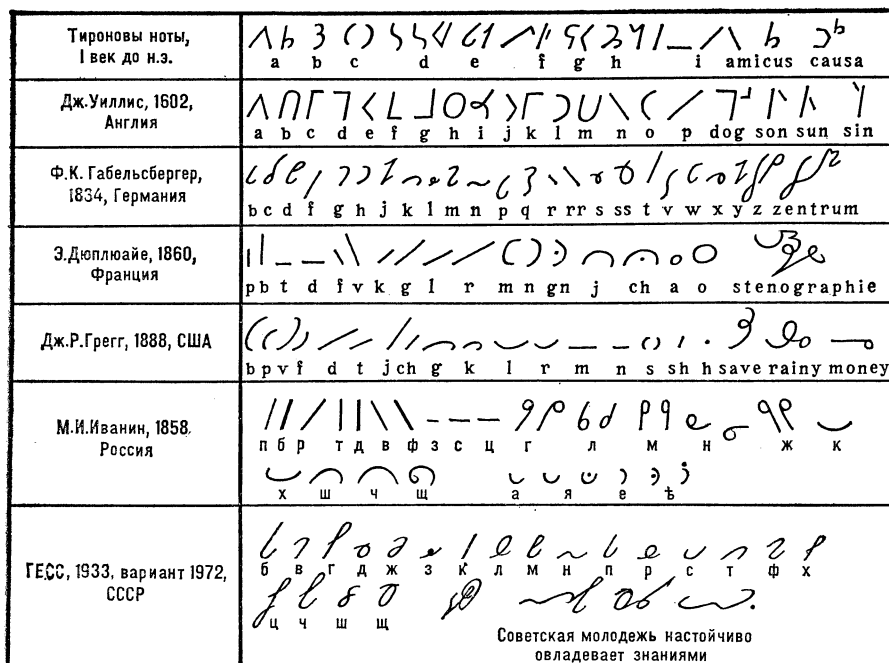 Тироновы ноты,
I век до н.э.
a b c d e f g h i amicus causa
Дж.Уиллис, 1602,
Англия
a b c d e f g h i j k l m n o p dog son sun sin
Ф.К. Габельсбергер,
1834, Германия
b c d f g h j k l m n p q r rr s ss t v w x y z zentrum
Э.Дюплюайе, 1860,
Франция
p b t d f v k g l r m n gn j ch a o stenographie
Дж.Р.Грегг, 1888, США
b p v f d t j ch g k l r m n s sh h save rainy money
М.И.Иванин, 1858
Россия
п б р т д в ф з с ц г л м н ж к
х ш ч щ а я е ѣ
ГЕСС, 1933, вариант 1972,
СССР
б в г д ж з к л м н п р с т ф х
ц ч ш щ
Советская молодежь настойчиво
овладевает знаниями